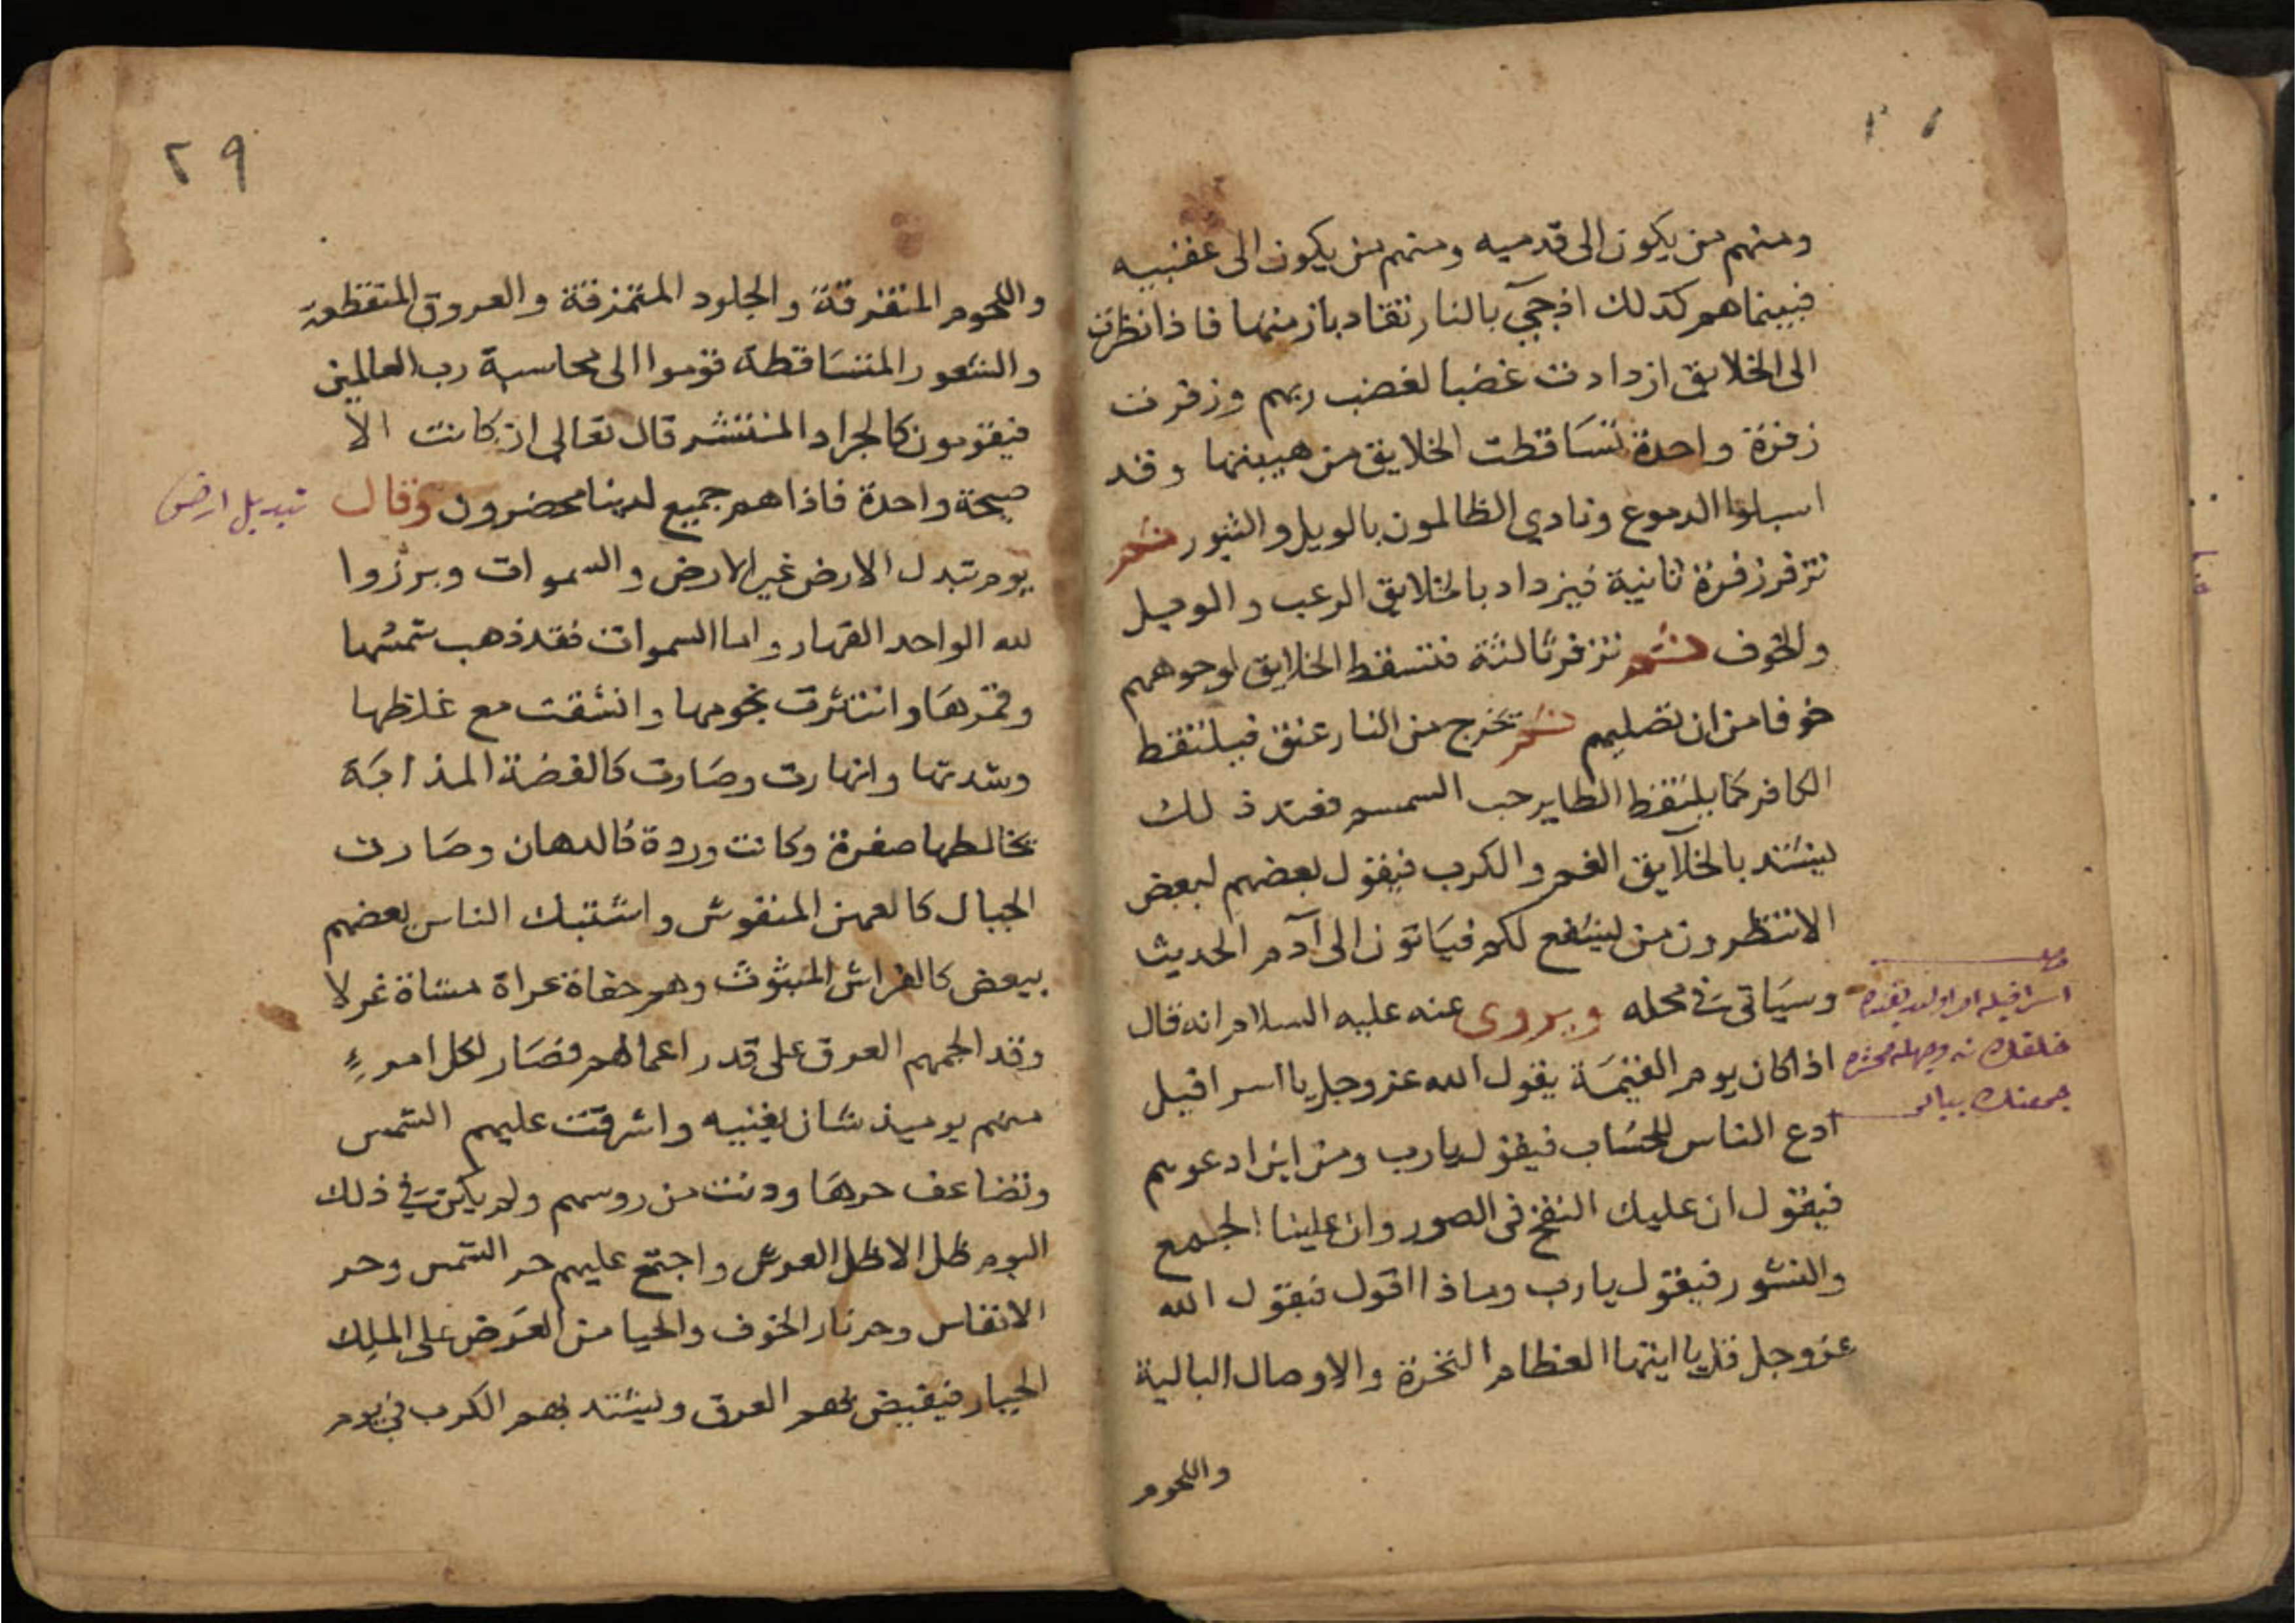 ومنهم من يكون الى قدميه ومنهم من يكون الى عقبيه
فبينما هم كذلك اذ جيء بالنار تقاد بازمتها فاذا نظرت
الى الخلايق ازدادت غضبا لغضب ربهم وزفرت
زفرة واحدة تتساقطت الخلايق من هيبتها وقد
اسبلوا الدموع ونادي الظالمون بالويل والثبور ثم
تزفر زفرة ثانية فيزداد بالخلايق الرعب والوجل
والخوف ثم تزفر ثالثة فتسقط الخلايق لوجوههم
خوفا من ان تصليهم ثم تخرج من النار عنق فيلتقط
الكافر كما يلتقط الطاير حب السمسم فعند ذلك
يشتد بالخلايق الغم والكرب فيقول بعضهم لبعض
الا تنظرون من يشفع لكم فياتون الى آدم الحديث
وسياتي في محله ويروى عنه عليه السلام انه قال
اذا كان يوم القيمة يقول الله عز وجل يا اسرافيل
ادع الناس للحساب فيقول يارب ومن اين ادعوهم
فيقول ان عليك النفخ في الصور وان علينا الجمع
والنشور فيقول يارب وماذا اقول فيقول الله
عز وجل قل يا ايتها العظام النخرة والاوصال البالية
واللحوم
٢٩
واللحوم المتفرقة والجلود المتمزقة والعروق المتقطعة
والشعور المتساقطة قوموا الى محاسبة رب العالمين
فيقومون كالجراد المنتشر قال تعالى ان كانت الا
صيحة واحدة فاذا هم جميع لدينا محضرون وقال
تبديل ارض
يوم تبدل الارض غير الارض والسموات وبرزوا
لله الواحد القهار واما السموات فقد ذهب شمسها
وقمرها وانتثرت نجومها وانشقت مع غلظها
وشدتها وانهارت وصارت كالفضة المذابة
تخالطها صفرة وكانت وردة كالدهان وصارت
الجبال كالعهن المنفوش واشتبك الناس بعضهم
ببعض كالفراش المبثوث وهم حفاة عراة مشاة غرلا
وقد الجمهم العرق على قدر اعمالهم فصار لكل امرء
منهم يوميذ شان يغنيه واشرقت عليهم الشمس
وتضاعف حرها ودنت من روسهم ولم يكن في ذلك
اليوم ظل الا ظل العرش واجتمع عليهم حر الشمس وحر
الانفاس وحر نار الخوف والحيا من العرض على الملك
الجبار فيفيض بهم العرق ويشتد بهم الكرب في يوم